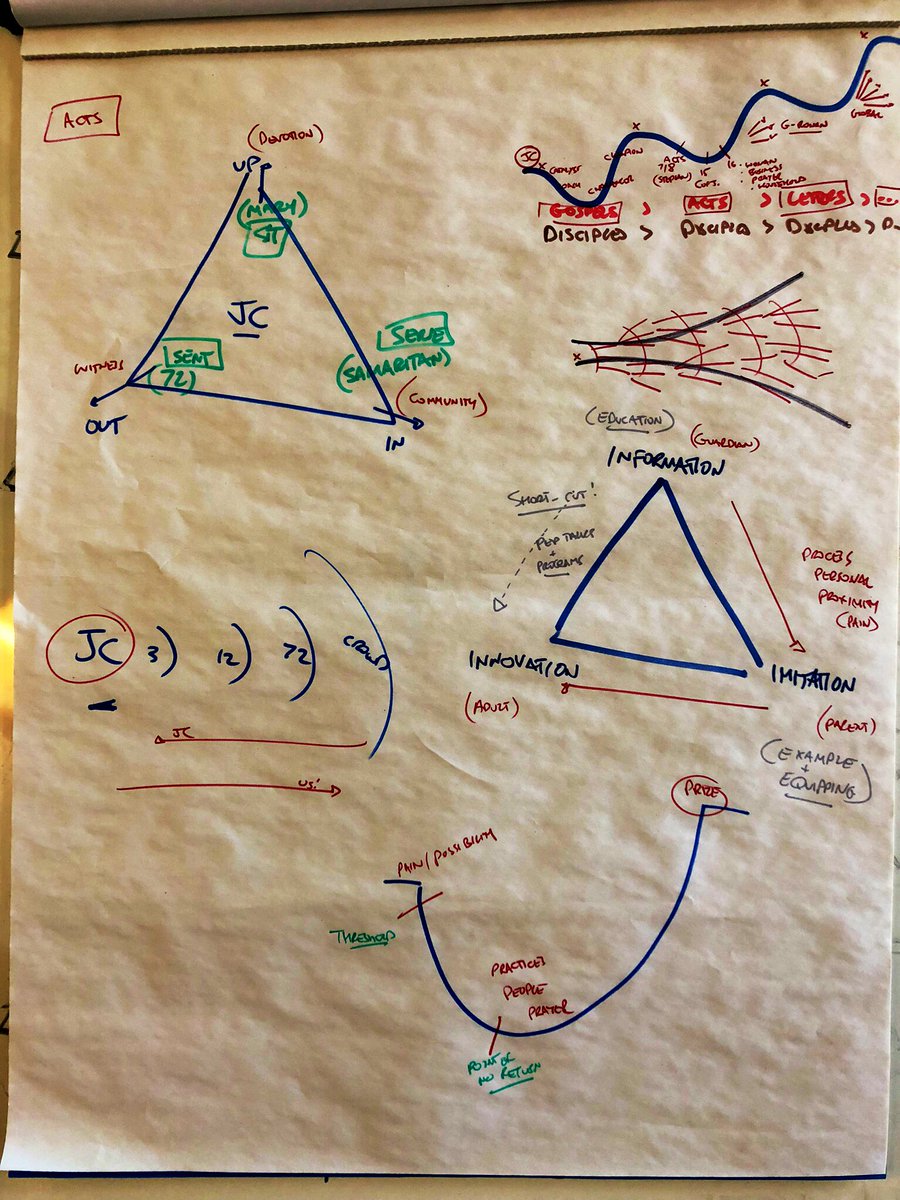 ACTS
(DEVOTION)
UP
(MARY)
SIT
JC
WITNESS
SENT
(72)
OUT
SERVE
(SAMARITAN)
(COMMUNITY)
IN
JC
CATALYST
CHAMPION
ACTS
7/8
(STEPHEN)
15
16
G-ROMAN
GLOBAL
GOSPELS > ACTS > LETTERS >
DISCIPLES >
(EDUCATION)
(GUARDIAN)
INFORMATION
SHORT-CUT!
PEP TALKS
+
PROGRAMS
PROCESS
PERSONAL
PROXIMITY
(PAIN)
INNOVATION
IMITATION
(ADULT)
(PARENT)
(EXAMPLE
+
EQUIPPING)
JC 3) 12) 72) CROWD
JC
US!
PRIZE
PAIN/POSSIBILITY
THRESHOLD
PRACTICES
PEOPLE
PRAYER
POINT OF
NO RETURN